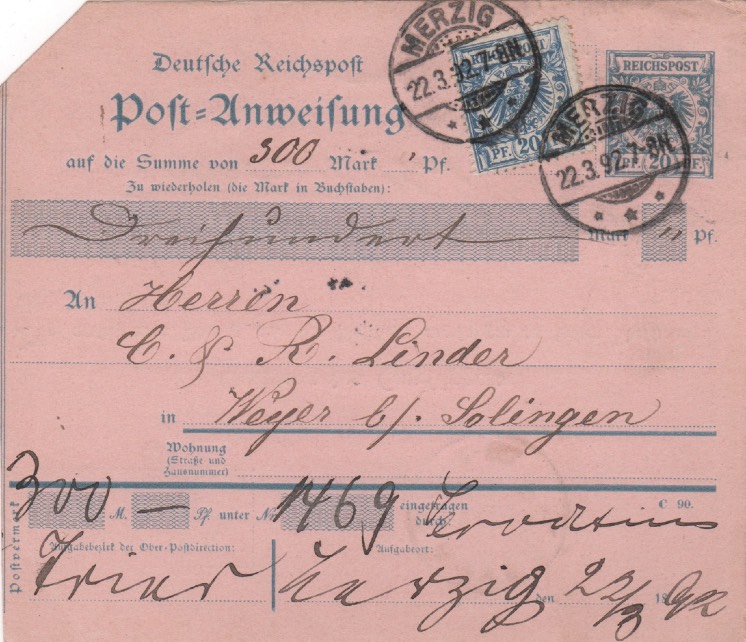 MERZIG
22.3.92.7-8N.
REICHSPOST
PF. 20
REICHSPOST
PF. 20 PF.
MERZIG
22.3.92.7-8N.
Deutsche Reichspost
Post-Anweisung
auf die Summe von 300 Mark " Pf.
Zu wiederholen (die Mark in Buchstaben):
Dreihundert Mark " Pf.
An Herren
C. & R. Linder
in Weyer b/. Solingen
Wohnung
(Straße und
Hausnummer)
300 M. — Pf. unter Nr. 1469 eingetragen
durch:
C 90.
Postvermerk
Aufgabebezirk der Ober-Postdirection:
Aufgabeort:
Trier Merzig den 22/3 1892